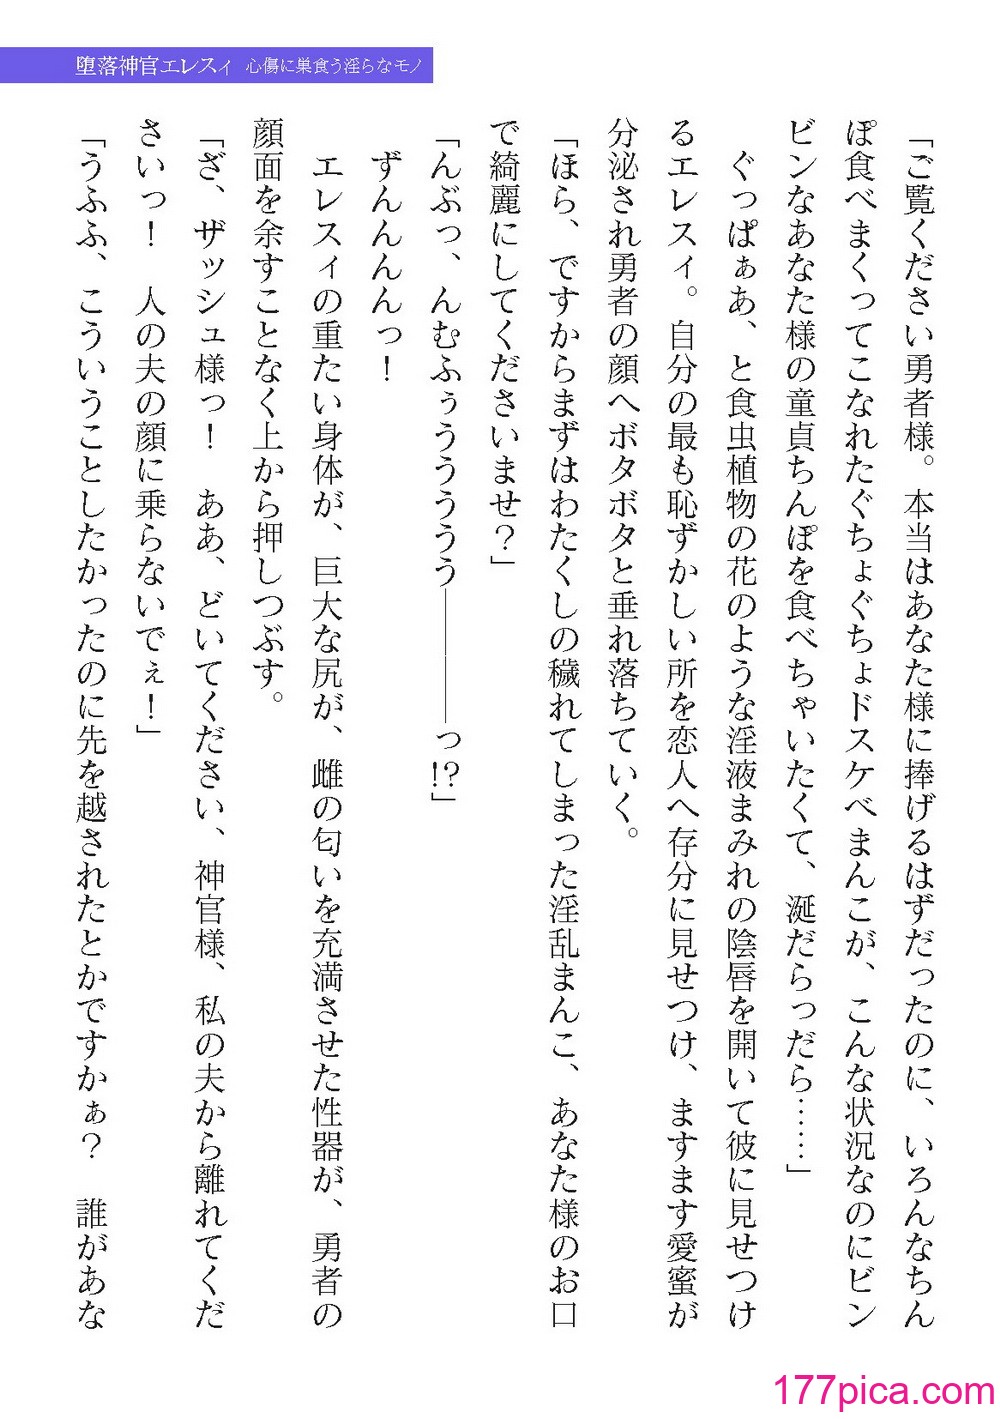 堕落神官エレスィ 心傷に巣食う淫らなモノ
「ご覧ください勇者様。本当はあなた様に捧げるはずだったのに、いろんなちん
ぽ食べまくってこなれたぐちょぐちょドスケベまんこが、こんな状況なのにビン
ビンなあなた様の童貞ちんぽを食べちゃいたくて、涎だらっだら……」
　ぐっぱぁあ、と食虫植物の花のような淫液まみれの陰唇を開いて彼に見せつけ
るエレスィ。自分の最も恥ずかしい所を恋人へ存分に見せつけ、ますます愛蜜が
分泌され勇者の顔へボタボタと垂れ落ちていく。
「ほら、ですからまずはわたくしの穢れてしまった淫乱まんこ、あなた様のお口
で綺麗にしてくださいませ？」
「んぶっ、んむふぅうううう――――っ!?」
　ずんんんんっ！
　エレスィの重たい身体が、巨大な尻が、雌の匂いを充満させた性器が、勇者の
顔面を余すことなく上から押しつぶす。
「ざ、ザッシュ様っ！　ああ、どいてください、神官様、私の夫から離れてくだ
さいっ！　人の夫の顔に乗らないでぇ！」
「うふふ、こういうことしたかったのに先を越されたとかですかぁ？　誰があな
177pica.com